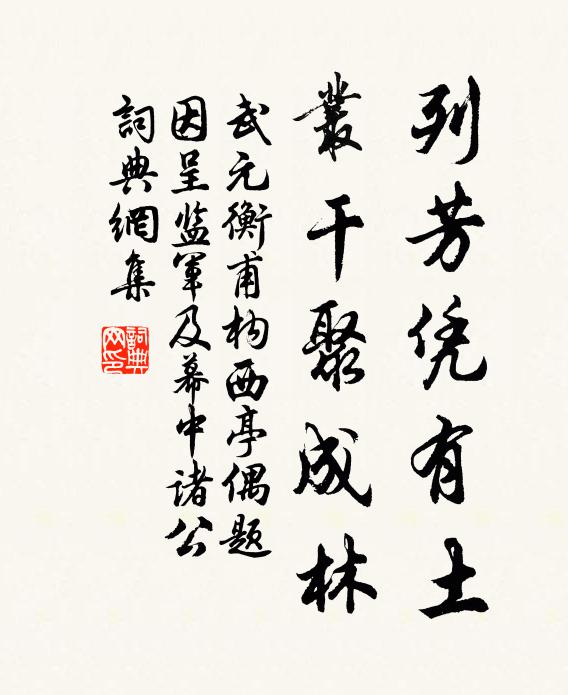 列芳凭有土
叢干聚成林
武元衡甫构西亭偶题
因呈监軍及幕中诸公
詞典網集
詞典网印